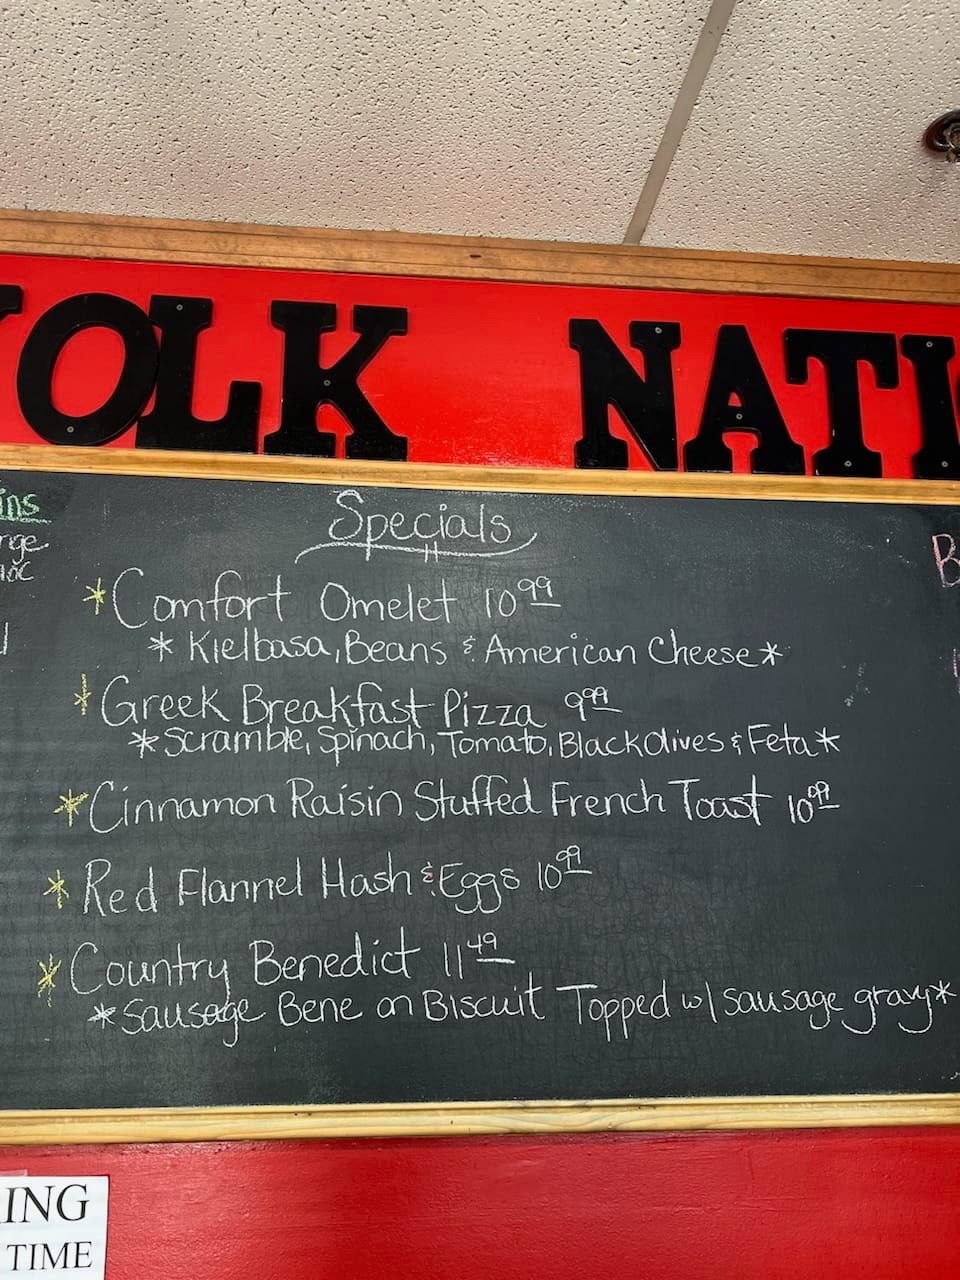 YOLK NATIO
Specials
*Comfort Omelet 10.99
*Kielbasa, Beans & American Cheese*
*Greek Breakfast Pizza 9.99
*Scramble, Spinach, Tomato, Black Olives & Feta*
*Cinnamon Raisin Stuffed French Toast 10.99
*Red Flannel Hash & Eggs 10.99
*Country Benedict 11.49
*Sausage Bene on Biscuit Topped w/ sausage gravy*
ins
nge
B
ING
TIME